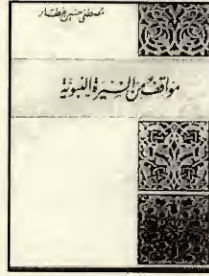 مصطفى حسين عطار
مواقف من السيرة النبوية